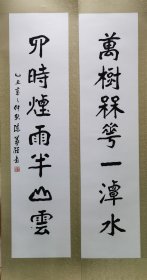 萬樹槑花一潭水
四時煙雨半山雲